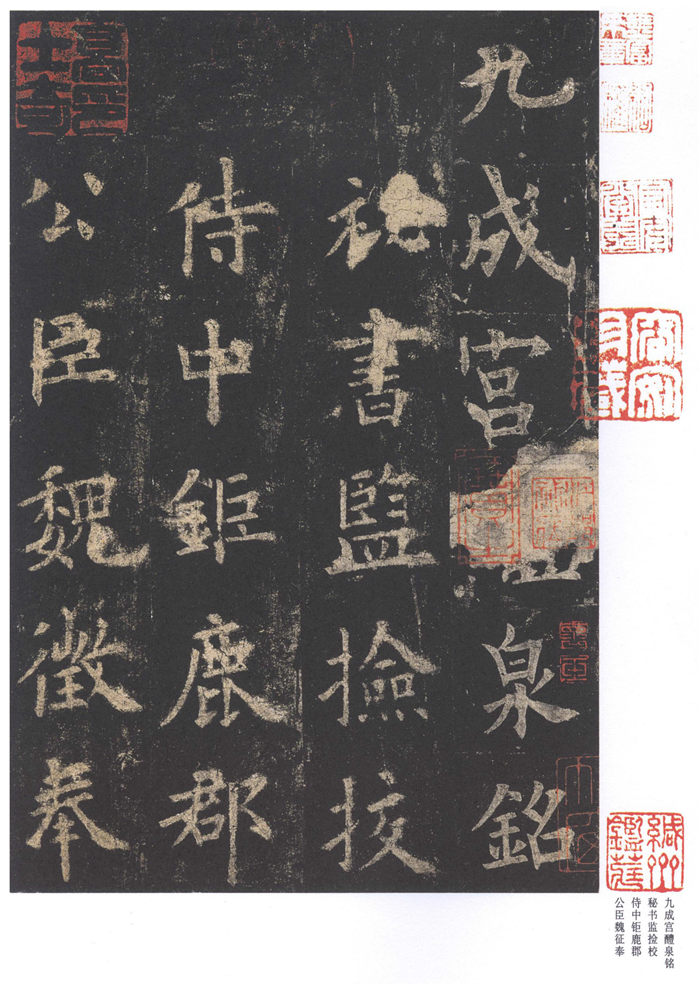 九成宮醴泉銘
祕書監撿挍
侍中鉅鹿郡
公臣魏徵奉
九成宫醴泉铭
秘书监捡校
侍中钜鹿郡
公臣魏征奉